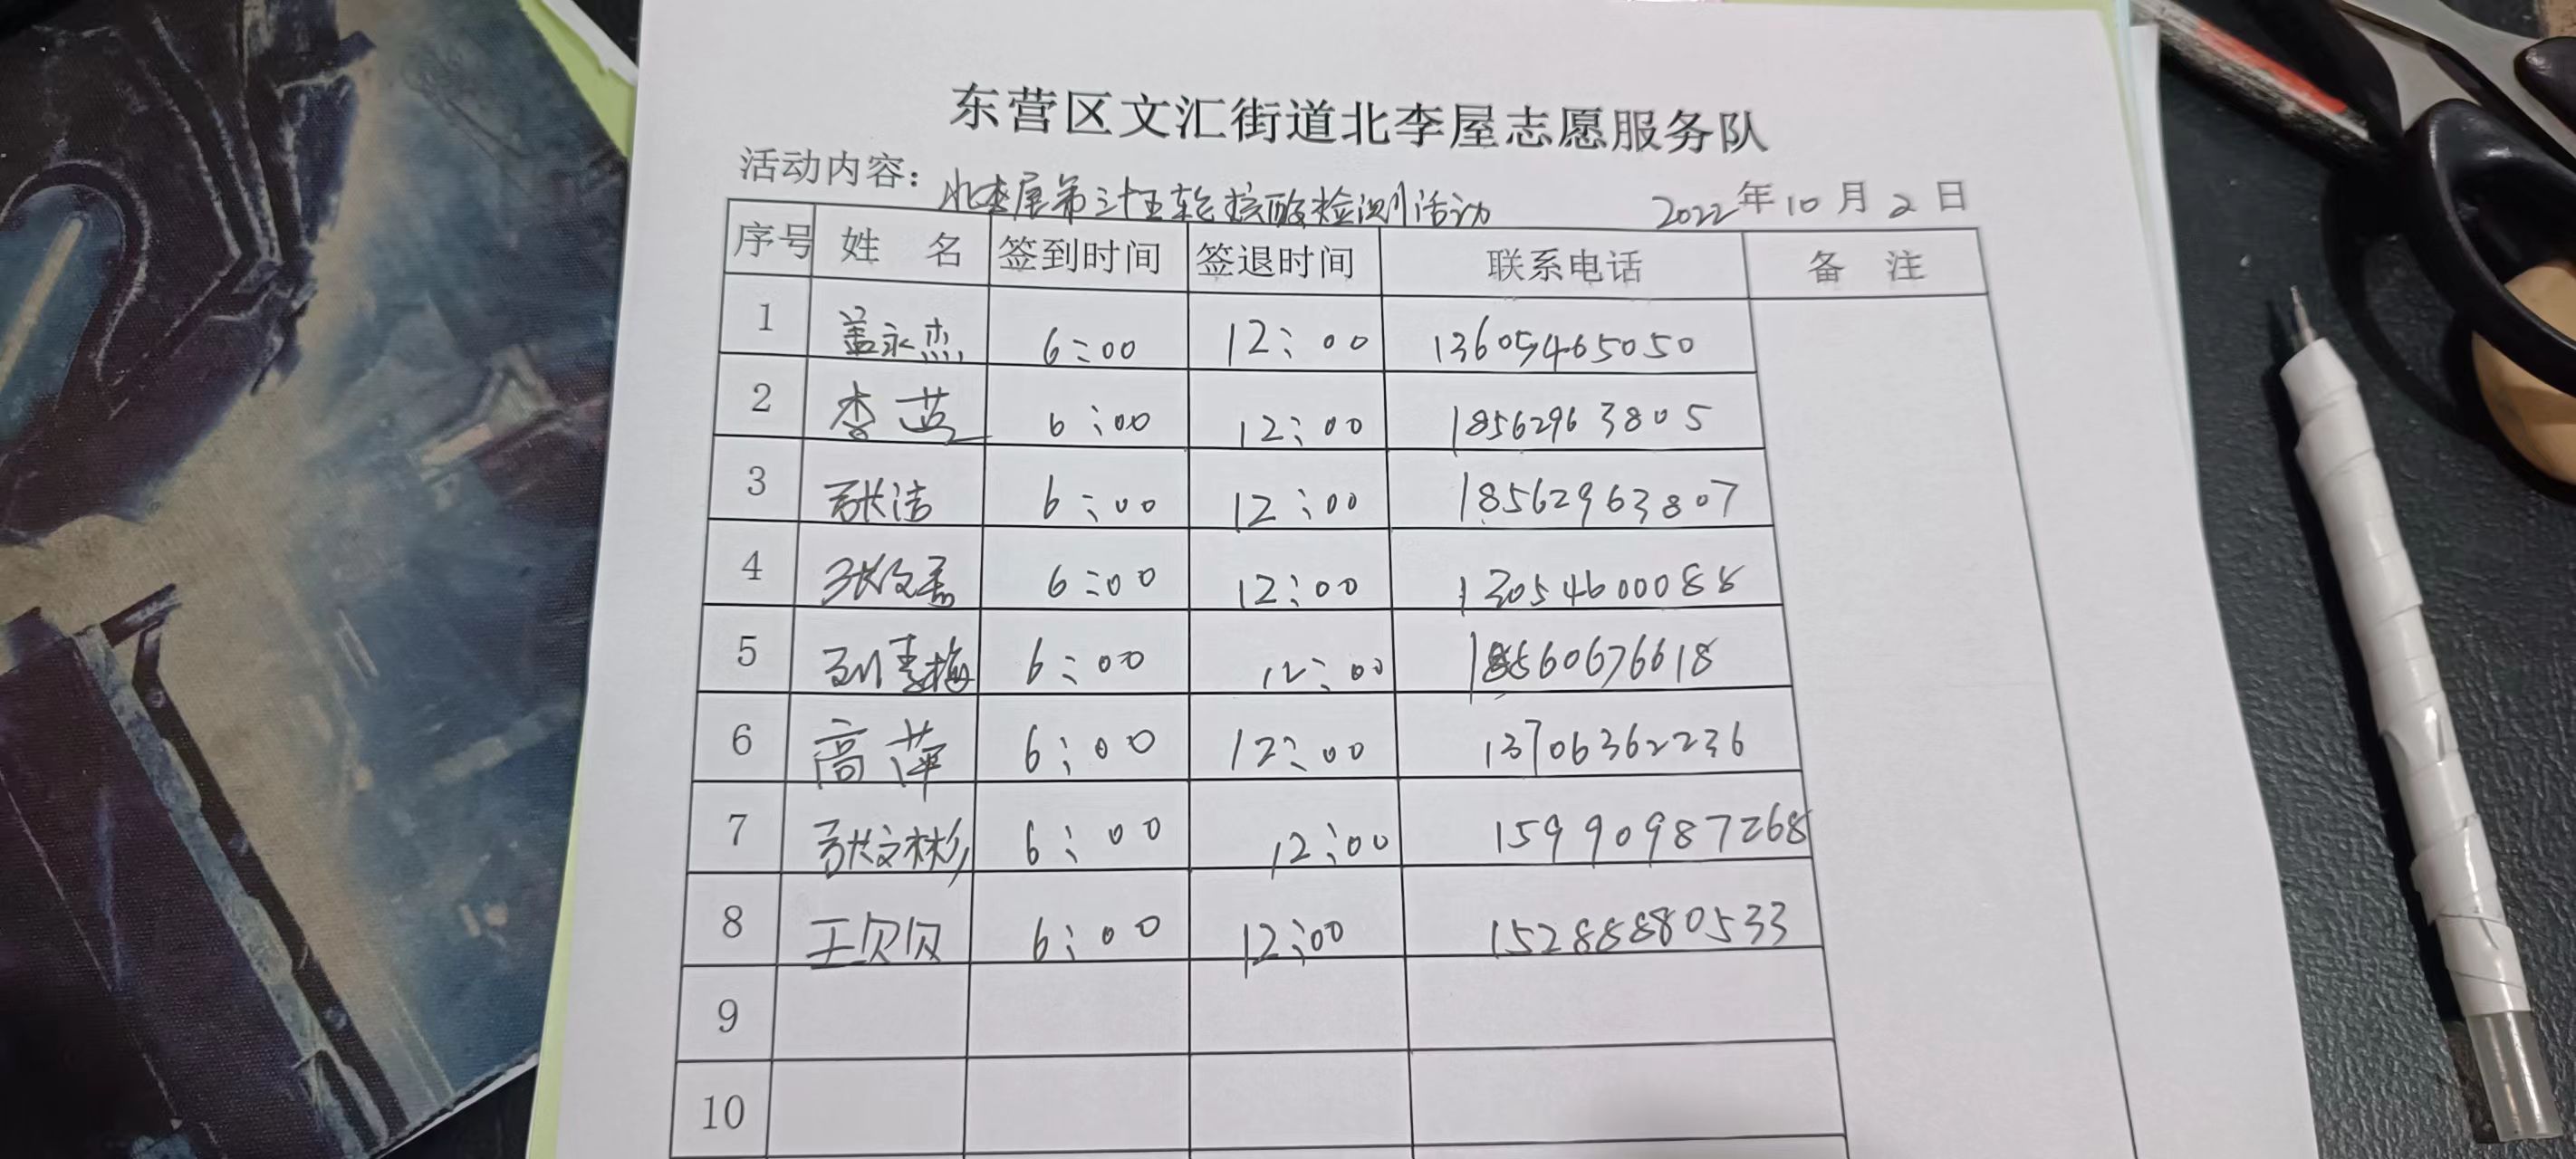 东营区文汇街道北李屋志愿服务队
活动内容：北李屋第三十五轮核酸检测活动 2022年10月2日
序号 姓 名 签到时间 签退时间 联系电话 备 注
1 盖永杰 6:00 12:00 13605465050
2 李蓝 6:00 12:00 18562963805
3 张洁 6:00 12:00 18562963807
4 6:00 12:00 13054600088
5 6:00 12:00 18560676618
6 高萍 6:00 12:00 13706362236
7 张文彬 6:00 12:00 15990987268
8 王贝贝 6:00 12:00 15288880533
9
10